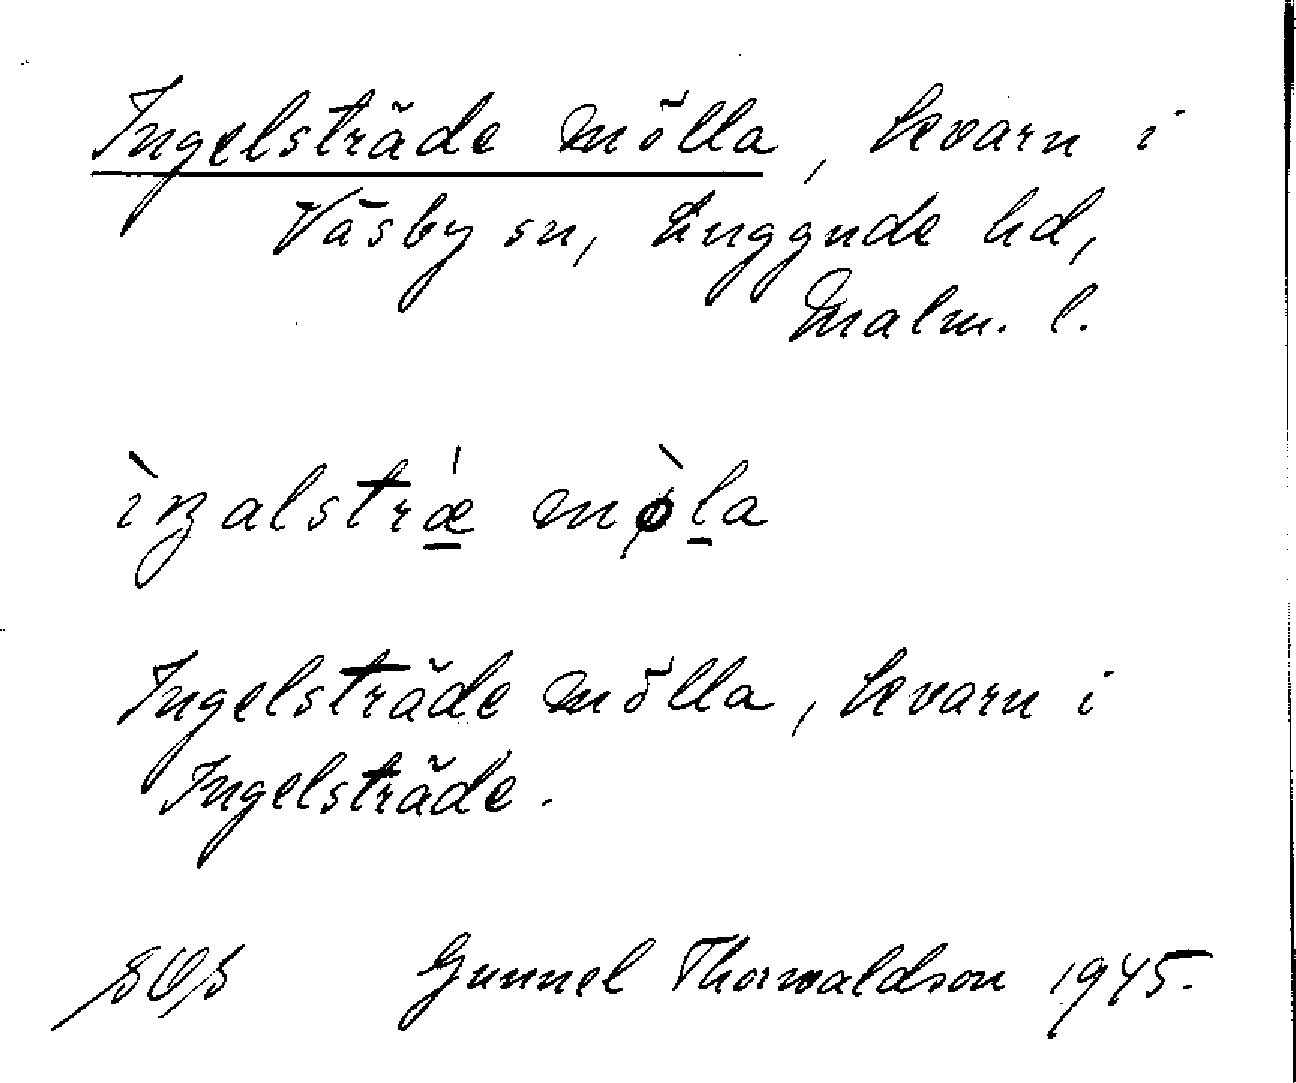 Ingelsträde mölla, kvarn i
Väsby sn, Luggude hd,
Malm. l.
ìŋalstrǽ mø̀la
Ingelsträde mölla, kvarn i
Ingelsträde.
Gunnel Thorwaldson 1945.